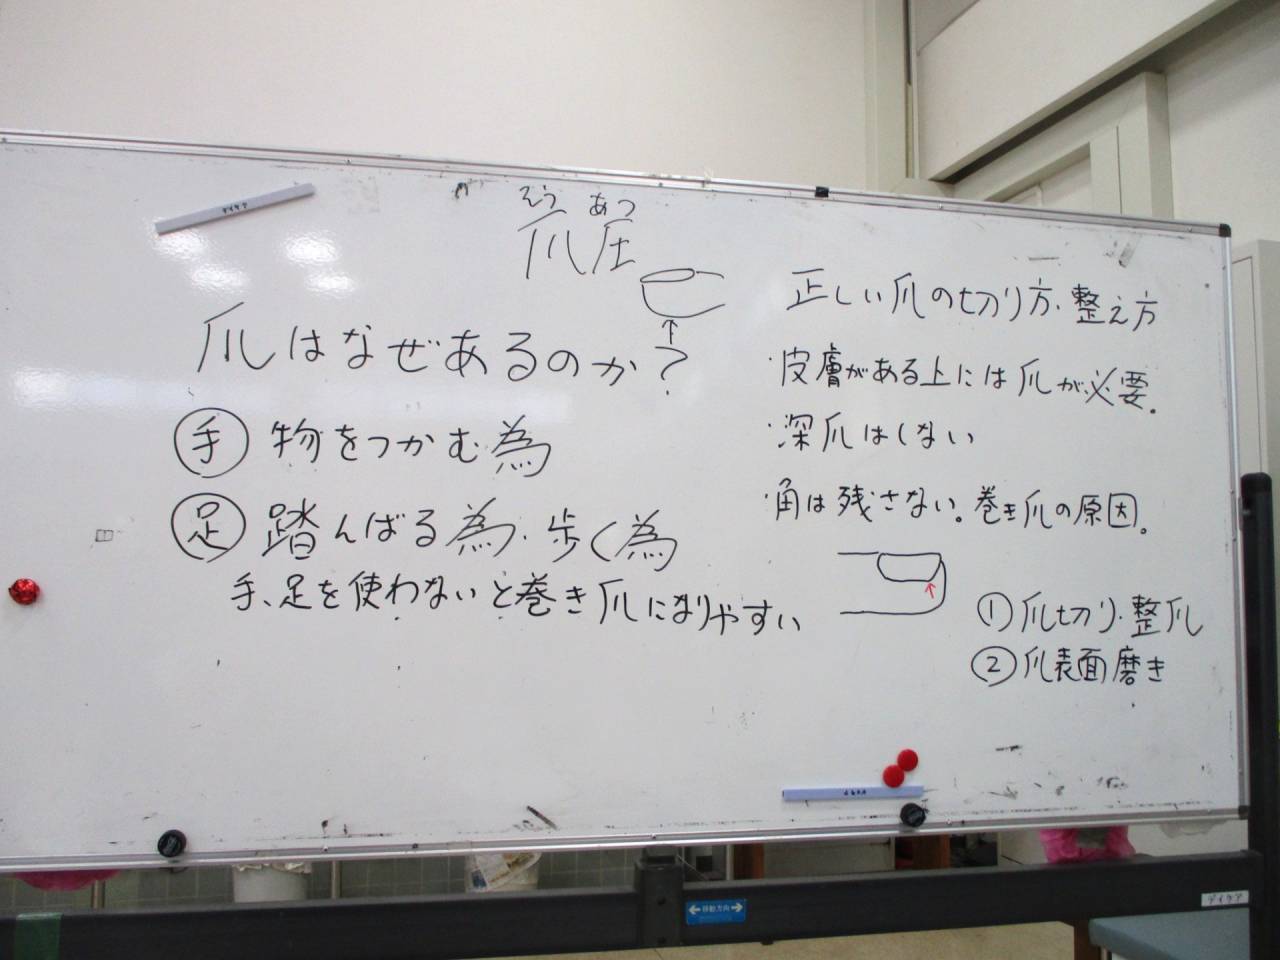 デイケア
そう あつ
爪圧
爪はなぜあるのか?
手 物をつかむ為
足 踏んばる為・歩く為
手、足を使わないと巻き爪になりやすい
正しい爪の切り方・整え方
・皮膚がある上には爪が必要。
・深爪はしない
・角は残さない。巻き爪の原因。
① 爪切り・整爪
② 爪表面磨き
移動方向
デイケア